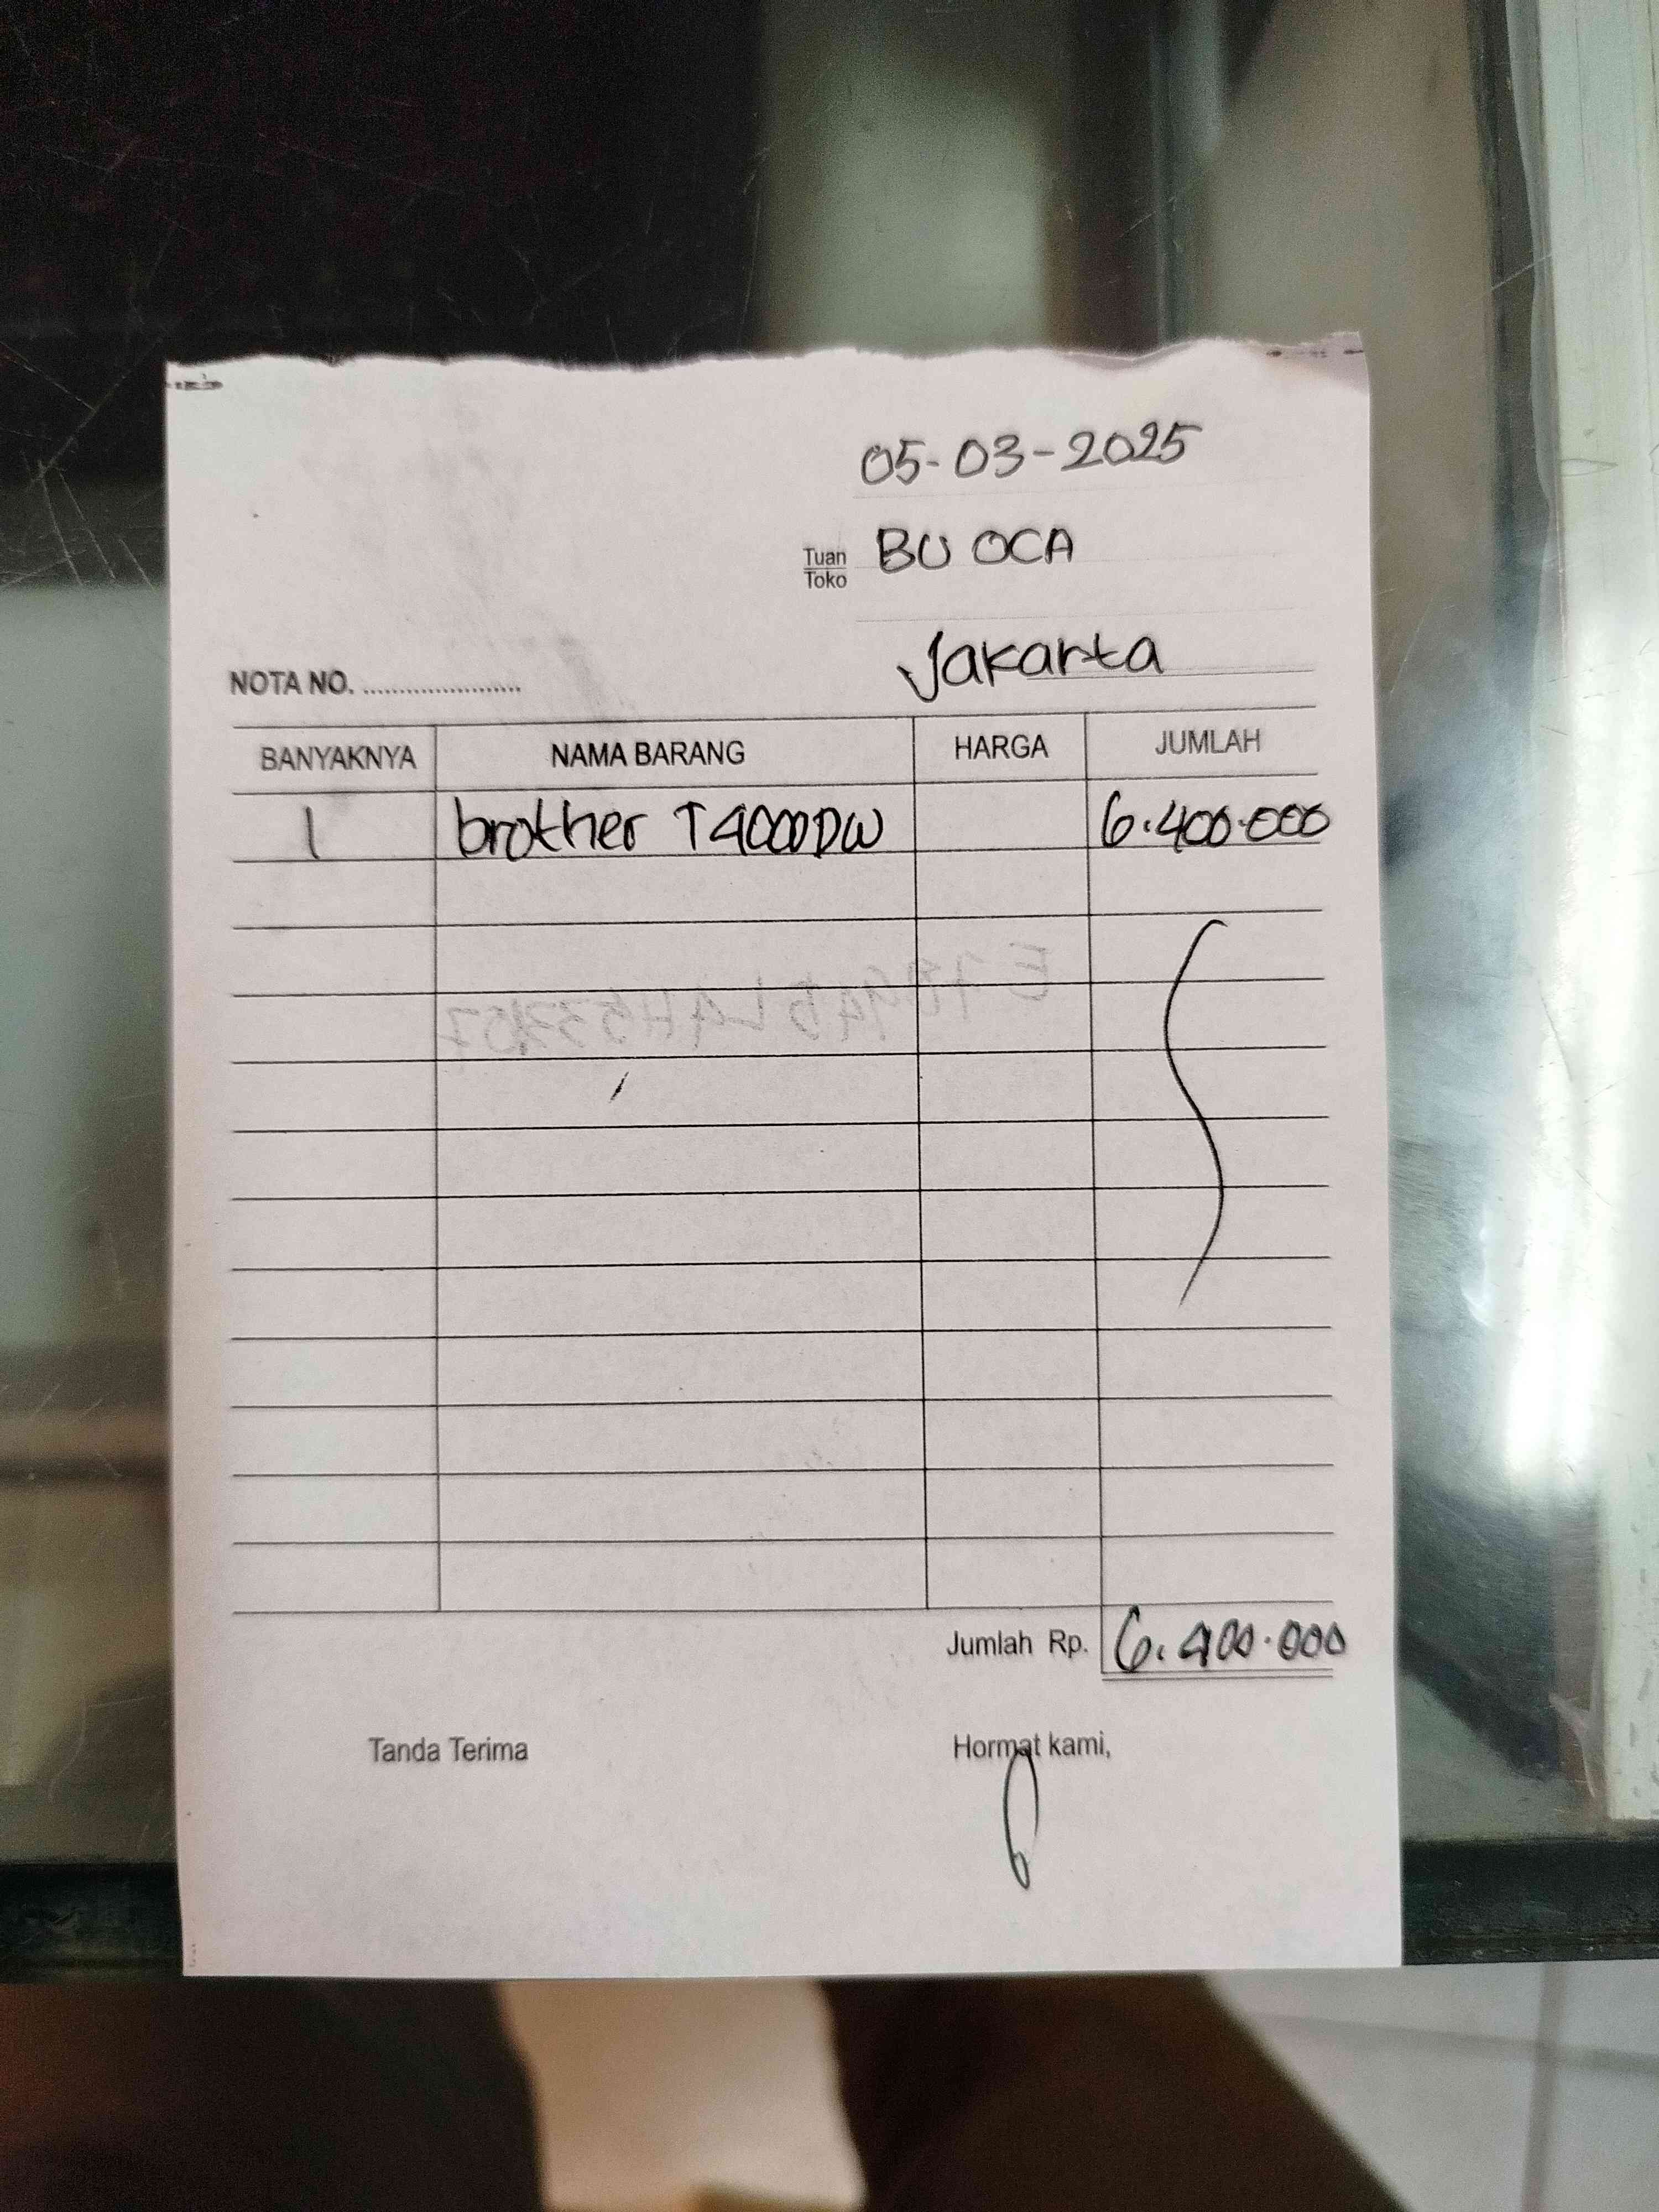 05-03-2025
Tuan
Toko
BU OCA
Jakarta
NOTA NO. ......................
BANYAKNYA NAMA BARANG HARGA JUMLAH
1 brother T4000DW 6.400.000
Jumlah Rp. 6.400.000
Tanda Terima Hormat kami,